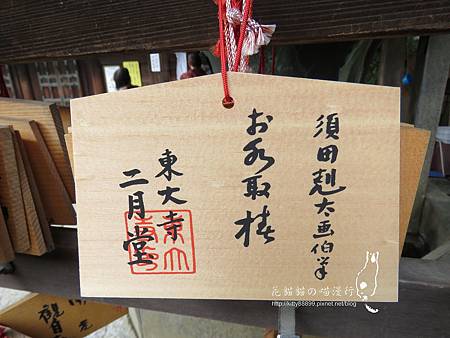 須田剋太画伯筆
お水取椿
東大寺
二月堂
花貓貓の喵漫行
http://kitty88899.pixnet.net/blog